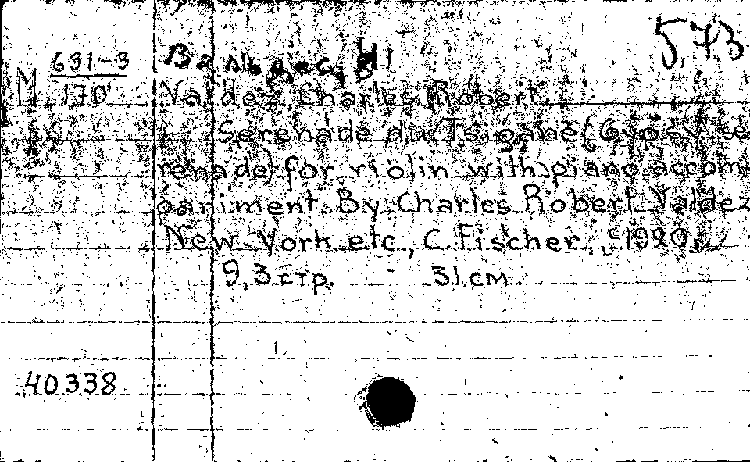 5.7.3
631-3
M 170
Валдес, Ч
Valdez, Charles Robert
Serenade du Tsigane (Gypsy se
renade) for violin with piano accom
paniment. By Charles Robert Valdez
New York etc., C. Fischer, 1920.
9, 3 стр. - 31 см
40338